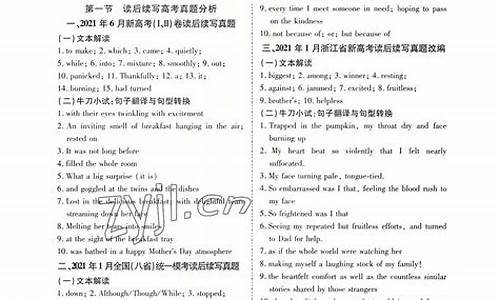 第一节 读后续写高考真题分析
一、2021 年 6 月新高考(I、II)卷读后续写真题
(一)文本解读
1. to make; 2. which; 3. came; 4. quietly;
5. while; 6. into; 7. mixture; 8. smoothly; 9. out;
10. panicked; 11. Thankfully; 12. a; 13. it;
14. burning; 15. had turned
(二)牛刀小试:句子翻译与句型转换
1. with their eyes twinkling with excitement
2. An inviting smell of breakfast hanging in the air;
rested on
3. It was not long before
4. filled the whole room
5. What a big surprise (it is)
6. and goggled at the twins and the dishes
7. Lost in the delicious breakfast, with delightful tears
streaming down her face
8. Melting her tears into smiles
9. at the sight of the breakfast tray
10. was bathed in a happy Mother's Day atmosphere
二、2021 年 1 月全国(八省)统一模考读后续写真题
(一)文本解读
1. down; 2. Although/Though/While; 3. stopped;
9. every time I meet someone in need; hoping to pass
on the kindness
10. not because of; or; but because of
三、2021 年 1 月浙江省新高考读后续写真题改编
(一)文本解读
1. biggest; 2. among; 3. winner; 4. resting;
5. against; 6. jammed; 7. excited; 8. fruitless;
9. brother's; 10. helpless
(二)牛刀小试:句子翻译与句型转换
1. Trapped in the pumpkin, my throat dry and face
burning up
2. My heart beat so violently that I felt nearly
suffocated.
3. My face turning pale, tongue-tied.
4. So embarrassed was I that, feeling the blood rush to
my face
5. So frightened was I that
6. Seeing my repeated but fruitless efforts, and turned
to Dad for help.
7. as if the whole world were watching her
8. making myself a laughing stock of my family!
9. the heartfelt comfort as well as the countless similar
stories shared by those strangers